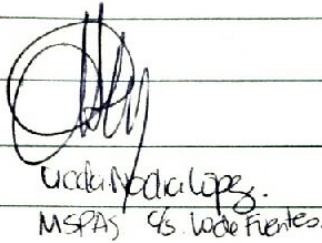 Licda. Nadia López.
MSPAS C/S. Lo de Fuentes.